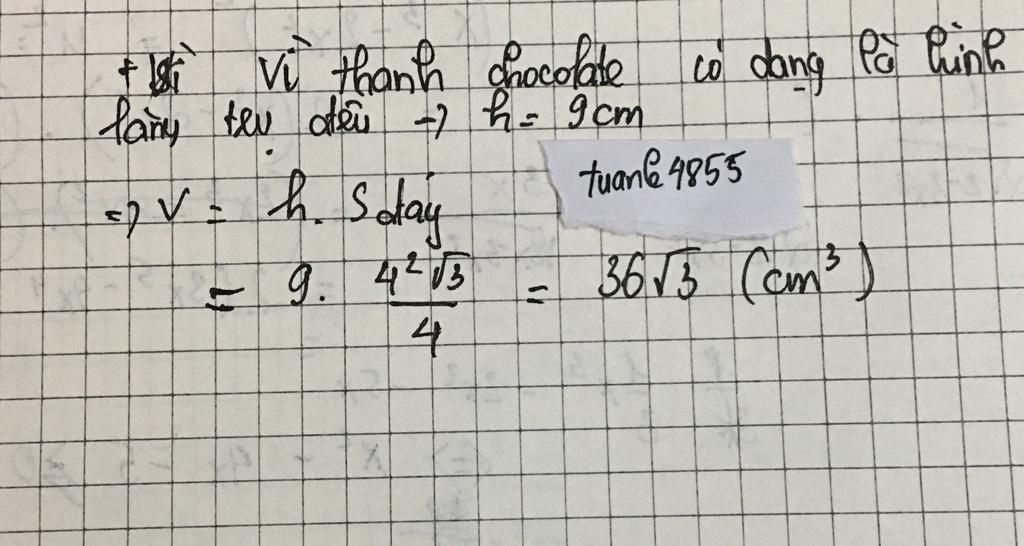 + Vì thanh chocolate có dạng là hình
lăng trụ đều → h = 9cm
tuanle4855
=> V = h. S đáy
= 9. 4²√3/4 = 36√3 (cm³)